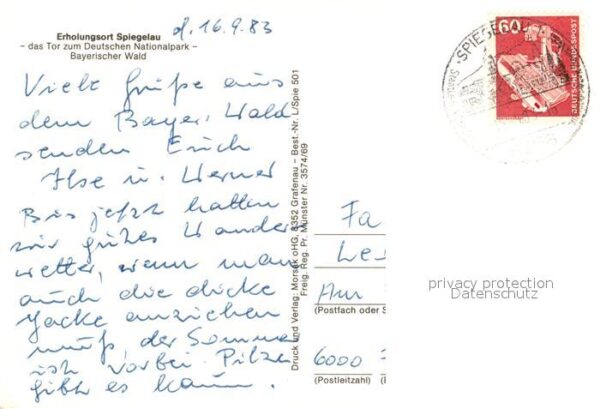 d. 16.9.83
Erholungsort Spiegelau
- das Tor zum Deutschen Nationalpark -
Bayerischer Wald
Viele Grüße aus
dem Bayer. Wald
senden Euch
Ilse u. Werner
Bis jetzt hatten
wir gutes Wander
wetter, wenn man
auch die dicke
Jacke anziehen
muß, der Sommer
ist vorbei. Pilze
gibt es kaum.
Druck und Verlag: Morsak oHG, 8352 Grafenau – Best.-Nr. L/Spie 501
Freig. Reg. Pr. Münster Nr. 3574/69
60
DEUTSCHE BUNDESPOST
SPIEGELAU
Fa
Am
(Postfach oder S
6000
(Postleitzahl) (B
privacy protection
Datenschutz